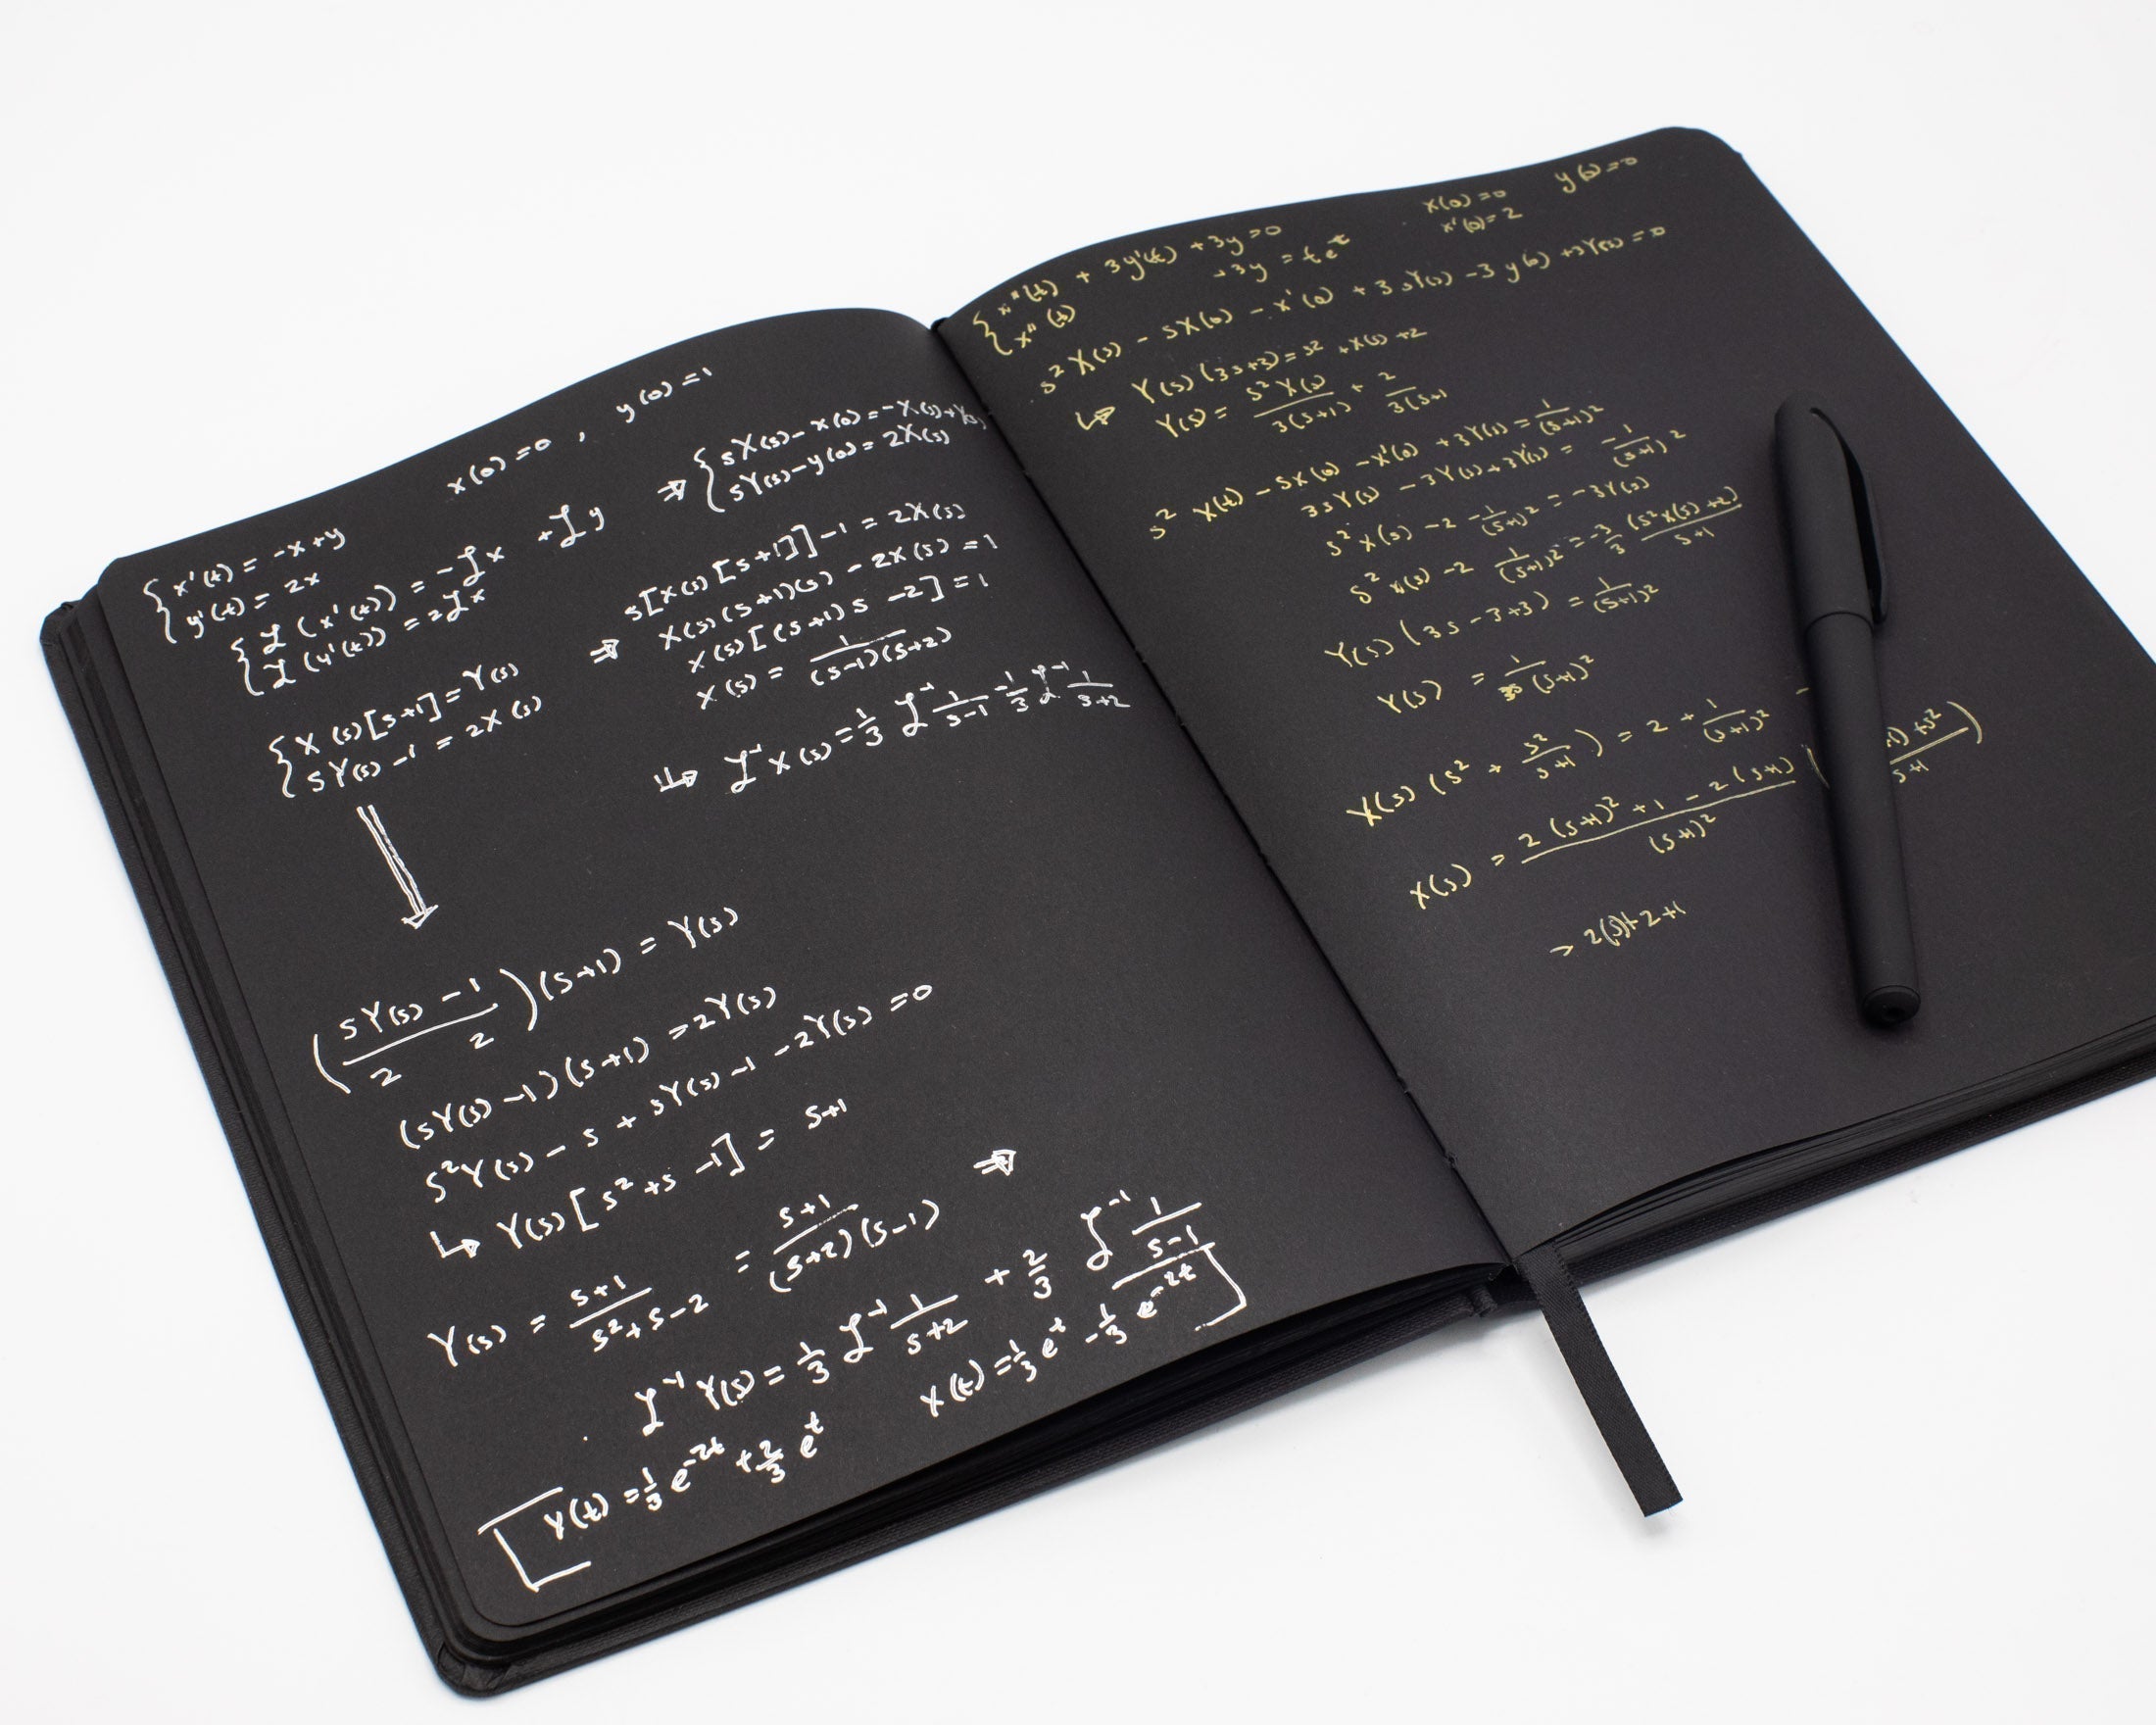 x(0) = 0 , y(0) = 1
{ x'(t) = -x+y
y'(t) = 2x
{ ℒ (x'(t)) = -ℒx +ℒy
ℒ (y'(t)) = 2ℒx
⇒ { sX(s) - x(0) = -X(s)+Y(s)
sY(s) - y(0) = 2X(s)
{ X(s)[s+1] = Y(s)
sY(s) -1 = 2X(s)
⇒ s[X(s)[s+1]]-1 = 2X(s)
X(s)(s+1)(s) - 2X(s) = 1
X(s)[(s+1)s -2] = 1
X(s) = 1/((s-1)(s+2))
↳ ℒ⁻¹ X(s) = 1/3 ℒ⁻¹ 1/(s-1) - 1/3 ℒ⁻¹ 1/(s+2)
((sY(s) -1)/(2 2))(s+1) = Y(s)
(sY(s) -1)(s+1) = 2Y(s)
s²Y(s) - s + sY(s) -1 -2Y(s) = 0
↳ Y(s)[s²+s -1] = s+1
Y(s) = (s+1)/(s²+s-2) = (s+1)/((s+2)(s-1)) ⇒
ℒ⁻¹ Y(s) = 1/3 ℒ⁻¹ 1/(s+2) + 2/3 ℒ⁻¹ 1/(s-1)
y(t) = 1/3 e^-2t + 2/3 e^t
x(t) = 1/3 e^t - 1/3 e^-2t
{ x''(t) + 3y'(t) + 3y = 0
x''(t) +3y = te^t
x(0) = 0 y(0) = 0
x'(0) = 2
s² X(s) - sX(0) - x'(0) + 3sY(s) -3y(0) +3Y(s) = 0
↳ Y(s)(3s+3) = s² +X(s) +2
Y(s) = s²X(s)/(3(s+1)) + 2/(3(s+1
s² X(t) - sX(0) - x'(0) + 3Y(s) = 1/(s+1)²
3sY(s) - 3Y(s) + 3Y(s) = -1/(s+1)²
s² X(s) -2 -1/(s+1)² = -3Y(s)
s² X(s) -2 1/(s+1)² = -3/3 (s²X(s)+2)/(s+1)
Y(s)(3s-3+3) = 1/(s+1)²
Y(s) = 1/(3s(s+1)²
X(s)(s² + s²/(s+1)) = 2 + 1/(s+1)² -
X(s) = (2(s+1)²+1 - 2(s+1))/(s+1)² ( 1)+s²/(s+1))
→ 2(s)+2+1